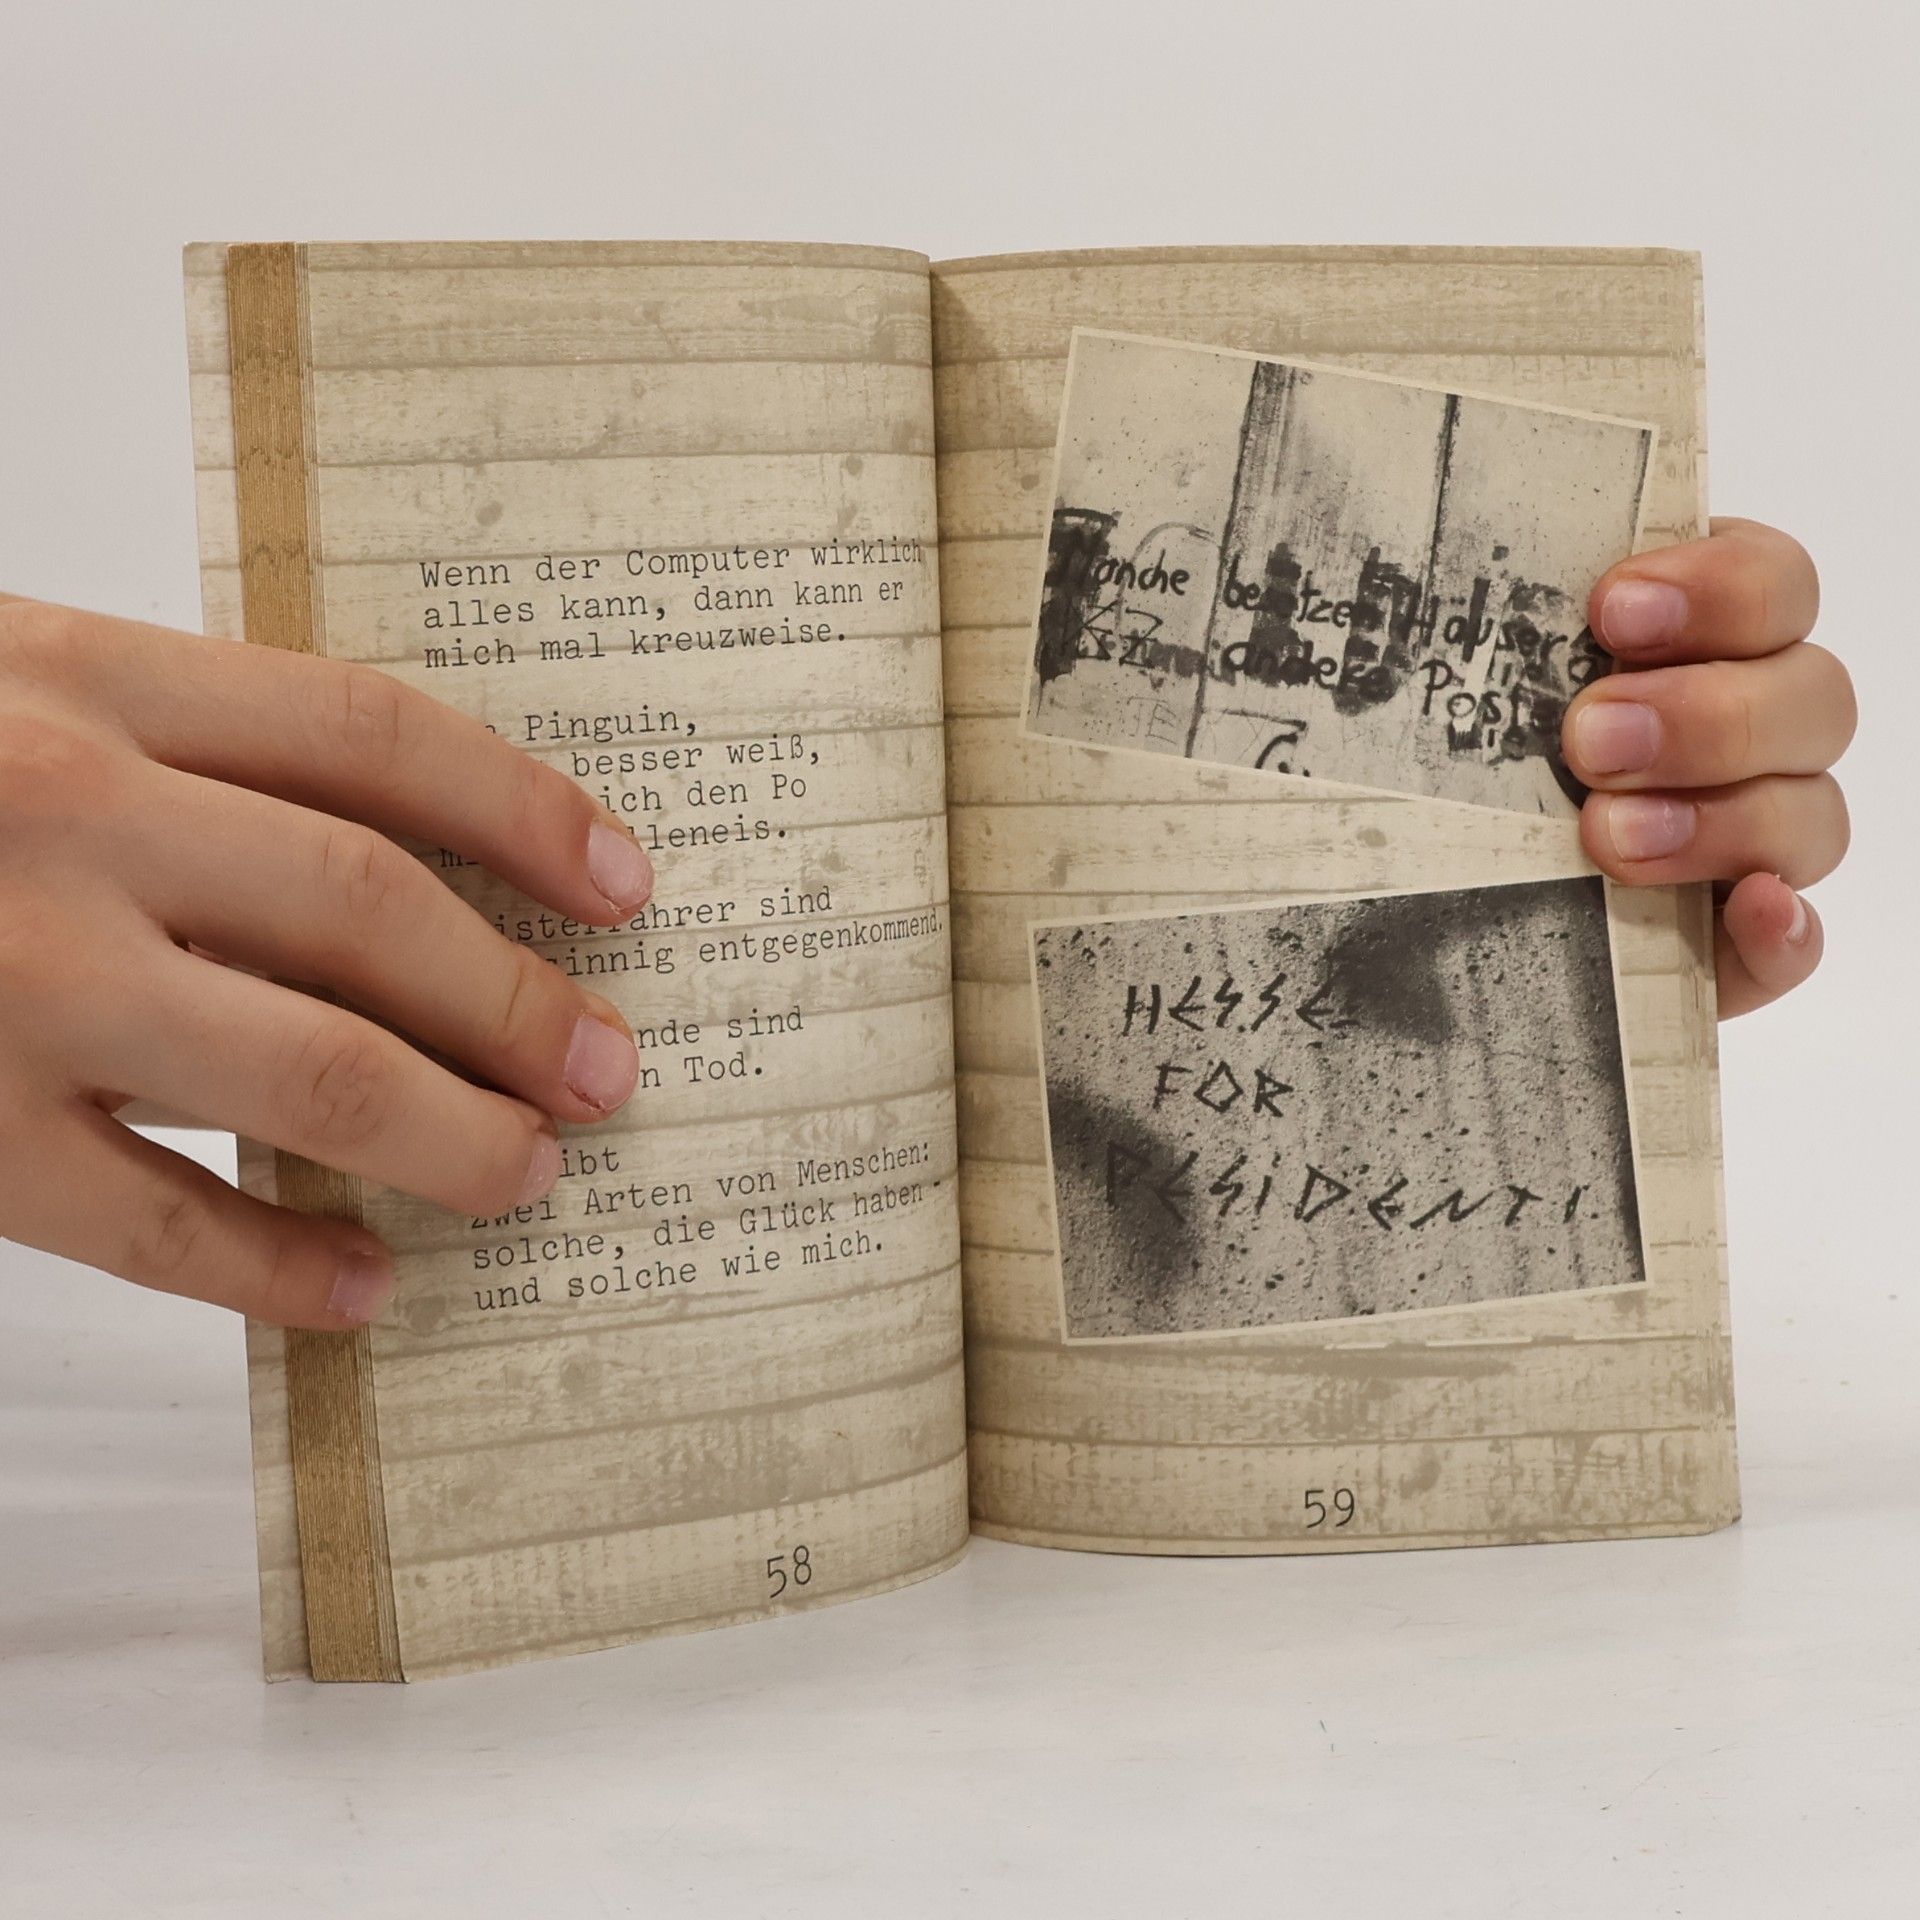 Wenn der Computer wirklich
alles kann, dann kann er
mich mal kreuzweise.
Pinguin,
besser weiß,
ich den Po
lleneis.
isterfahrer sind
sinnig entgegenkommend.
nde sind
n Tod.
ibt
zwei Arten von Menschen:
solche, die Glück haben -
und solche wie mich.
58
Manche besitzen Häuser
andere Post
HESSE
FOR
RESIDENT!
59